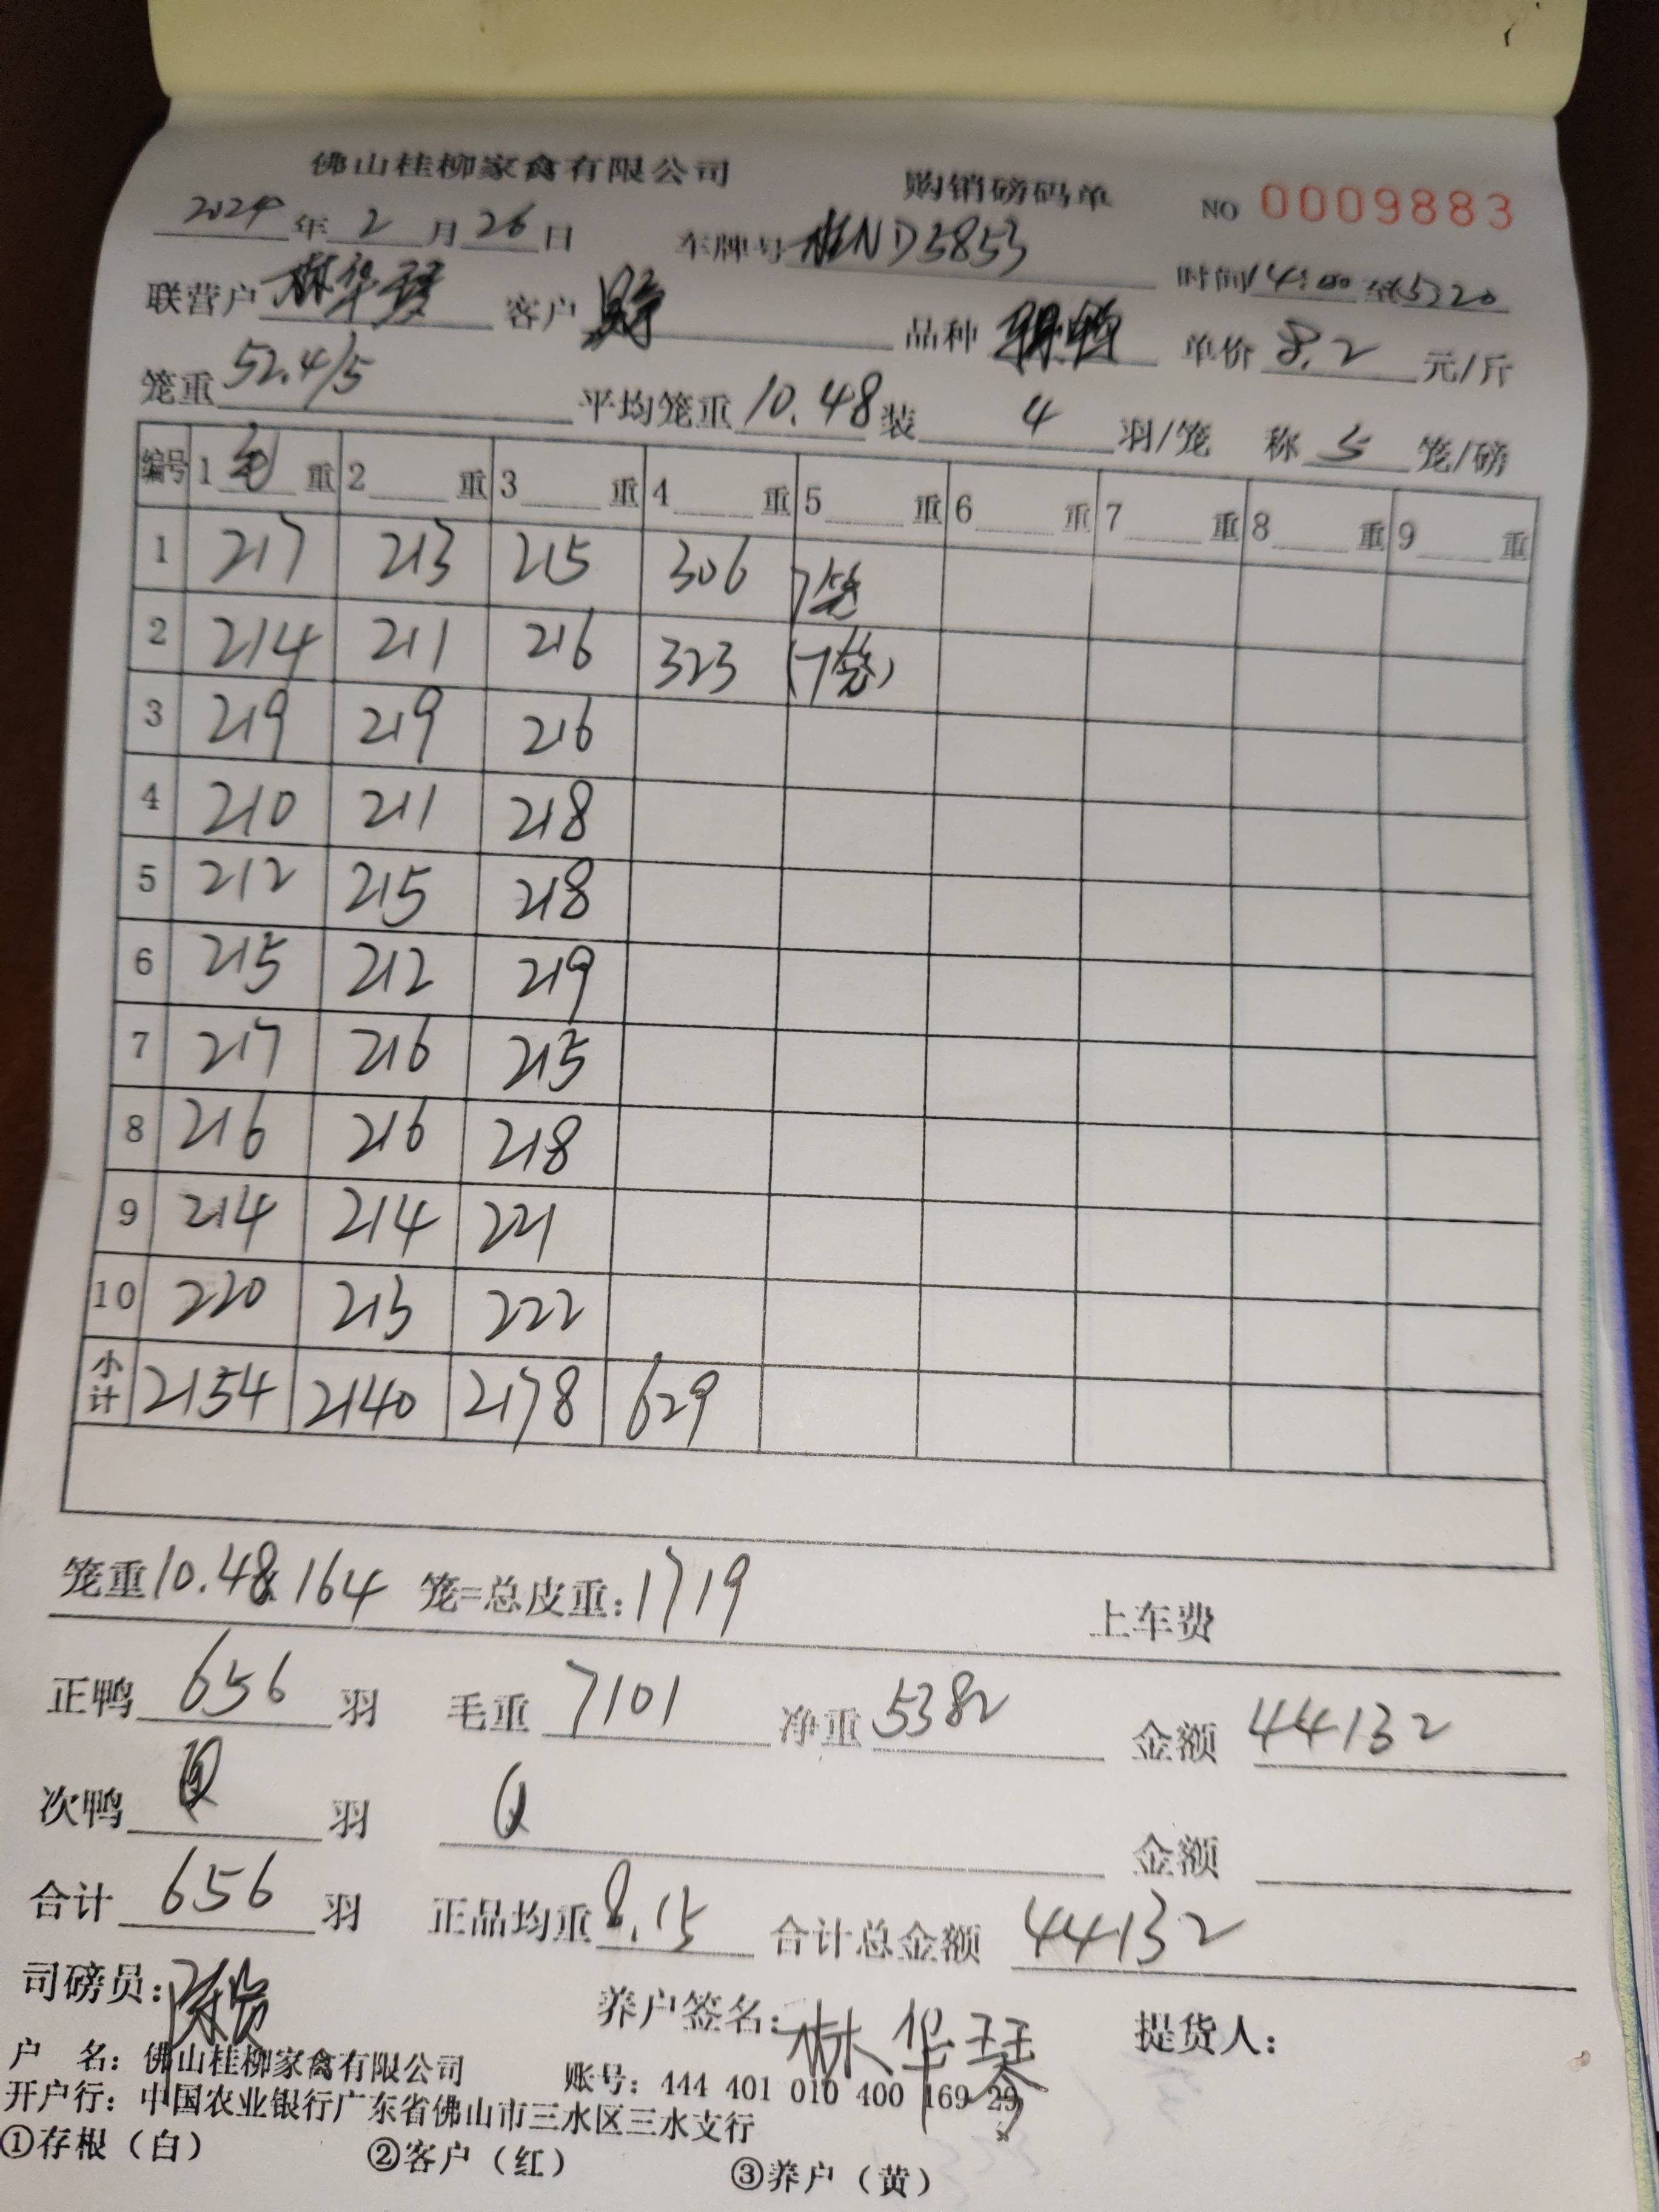 佛山桂柳家禽有限公司 购销磅码单 NO 0009883
2024年2月26日 车牌号 ND5853 时间14:00至15:20
联营户 林华琴 客户 品种 单价 8.2 元/斤
笼重 52.4/5 平均笼重 10.48 装 4 羽/笼 称 5 笼/磅
编号 1 毛 重 2 重 3 重 4 重 5 重 6 重 7 重 8 重 9 重
1 217 213 215 306 7笼
2 214 211 216 323 (7笼)
3 219 219 216
4 210 211 218
5 212 215 218
6 215 212 219
7 217 216 215
8 216 216 218
9 214 214 221
10 220 213 222
小计 2154 2140 2178 629
笼重 10.48 164 笼=总皮重:1719 上车费
正鸭 656 羽 毛重 7101 净重 5382 金额 44132
次鸭 0 羽 0 金额
合计 656 羽 正品均重 8.15 合计总金额 44132
司磅员: 养户签名: 林华琴 提货人:
户 名: 佛山桂柳家禽有限公司 账号: 444 401 010 400 169 29
开户行: 中国农业银行广东省佛山市三水区三水支行
①存根（白） ②客户（红） ③养户（黄）